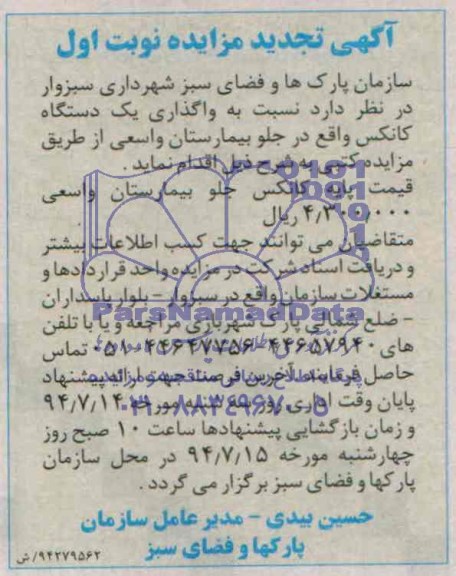 آگهی تجدید مزایده نوبت اول
سازمان پارک ها و فضای سبز شهرداری سبزوار
در نظر دارد نسبت به واگذاری یک دستگاه
کانکس واقع در جلو بیمارستان واسعی از طریق
مزایده کتبی به شرح ذیل اقدام نماید.
قیمت پایه کانکس جلو بیمارستان واسعی
۴/۳۰۰/۰۰۰ ریال
متقاضیان می توانند جهت کسب اطلاعات بیشتر
و دریافت اسناد شرکت در مزایده واحد قراردادها و
مستغلات سازمان واقع در سبزوار - بلوار پاسداران
ParsNamadData
- ضلع شمالی پارک شهربازی مراجعه و یا با تلفن
های ۴۴۶۵۷۹۴۰ - ۴۴۶۴۷۳۵۶-۰۵۱ تماس
حاصل فرمایند. آخرین فرصت جهت ارائه پیشنهاد
پایان وقت اداری روز سه شنبه مورخه ۹۴/۷/۱۴
۰۲۱-۸۸۳۴۹۶۷۰-۵
و زمان بازگشایی پیشنهادها ساعت ۱۰ صبح روز
چهارشنبه مورخه ۹۴/۷/۱۵ در محل سازمان
پارکها و فضای سبز برگزار می گردد.
حسین بیدی - مدیر عامل سازمان
پارکها و فضای سبز
۹۴۲۷۹۵۶۲/ش